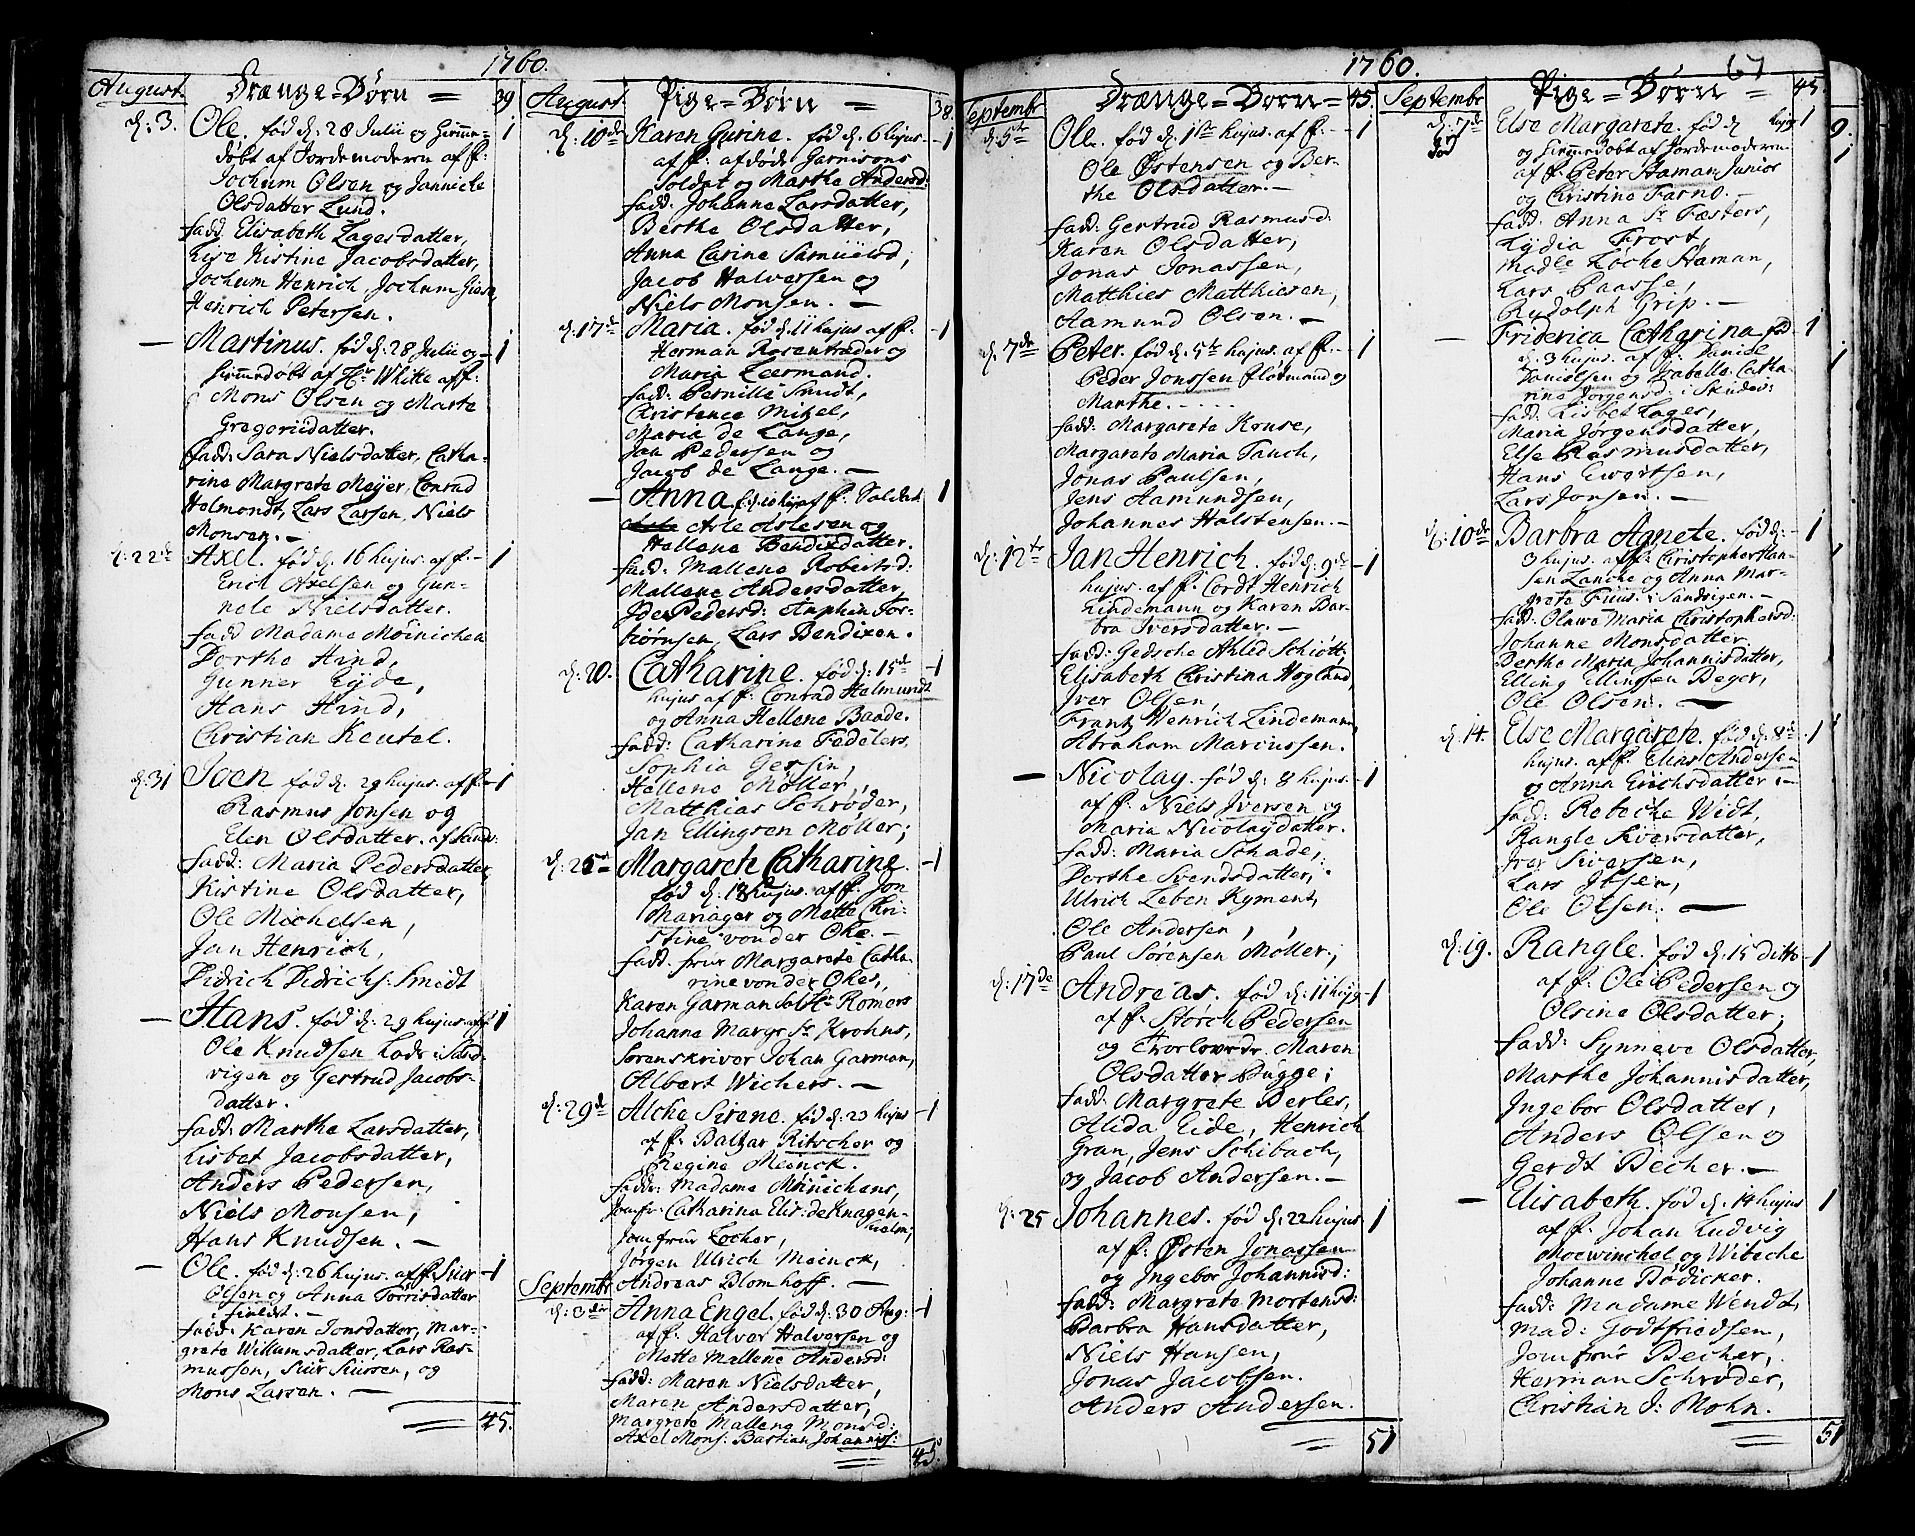 1760.
August. Drænge=Børn = 39
d: 3. Ole. fød d: 28 Julii og hjemme- 1
døbt af Jordemoderen af f:
Jochum Olsen og Jannicke
Olsdatter Lund.
fadd Elisabeth Lagesdatter,
Lise Kistine Jacobsdatter,
Jochum Henrich, Jochum Giese,
Henrich Petersen.
— Martinus. fød d: 28 Julii og- 1
hjemmedøbt af Hr White af f:
Mons Olsen og Marte
Gregoriidatter.
fadd: Sara Nielsdatter, Catha-
rine Margrete Meyer, Conrad
Holmondt, Lars Larsen, Niels
Monsen. —
d: 22de Axel. fød d. 16 hujus. af f. 1
Erich Axelsen og Gun-
nele Nielsdatter.
fadd Madame Møinichen
Dorthe Hind,
Gunner Eyde,
Hans Hind,
Christian Keutel.
d: 31 Joen fød d. 29 hujus. af f. 1
Rasmus Jonsen og
Elen Olsdatter. af Sand:
fadd: Maria Pedersdatter,
Kistine Olsdatter,
Ole Michelsen,
Jan Henrich,
Didrich Didrichs: Smidt
— Hans. fød d: 29 hujus. af f. 1
Ole Knudsen Lods i Sand-
vigen og Gertrud Jacobs-
datter.
fadd: Marthe Larsdatter,
Lisbet Jacobsdatter,
Anders Pedersen,
Niels Monsen,
Hans Knudsen. —
— Ole. fød d: 26 hujus. af f. Siur 1
Olsen og Anna Torrisdatter
fadd: Karen Jonsdatter, Mar-
grete Willumsdatter, Lars Ras-
mussen, Siur Siursen, og
Mons Larsen. —
45.
August. Pige=Børn = 38.
d: 10de Karen Gurine. fød d. 6 hujus. 1
af f: afdøde Garnisons
Soldat og Marthe Andersd:
fadd: Johanne Larsdatter,
Berthe Olsdatter,
Anna Carine Samuelsd;
Jacob Halversen og
Niels Monsen. —
d: 17de Maria. fød d. 11 hujus. af f. 1
Herman Rosentræder og
Maria Leermand.
fadd: Pernille Smidt,
Christence Mitzel,
Maria de Lange,
Jan Pedersen og
Jacob de Lange. —
— Anna f. d. 10 huj. af f. Soldat 1
Asle Aslesen og
Hellene Bendixdatter.
fadd: Mallene Robertsd:
Mallene Andersdatter,
Ide Pedersd: Anphin Tor-
biørnsen, Lars Bendixen.
d: 20. Catharine. fød d: 15de 1
hujus af f. Conrad Helmundt
og Anna Hellene Baade.
fadd: Catharine Fedelers,
Sophia Gersin,
Hellene Møller,
Matthias Schrøder,
Jan Ellingsen Møller;
d: 25 Margarete Catharine. 1
fød d. 18 hujus. af f. Jon
Mariager og Mette Chri-
stine von der Ohe. —
fadd. frue Margarete Catha-
rine von der Ohes,
Karen Garman Romers
Johanne Margr. Sr Krohns,
Sorenskriver Johan Garman,
Albert Wichers. —
d: 29de Alche Sirene. fød d: 23 hujus 1
af f. Baltzar Ritscher og
Regine Meinck.
fadd: Madame Møinichens,
Jomfr: Catharina Elis: de Knagen-
hielm,
Jomfrur Locher,
Jørgen Ulrich Meinck,
Andreas Blomhoff. —
Septembr.
d: 3die Anna Engel. fød d: 30 Aug: 1
af f. Halver Halversen og
Mette Mallene Andersd:
fadd: Maren Nielsdatter,
Maren Andersdatter,
Margrete Mallena Monsd:
Axel Mons: Bastian Johannis:
45.
1760. 67
Septembr. Drænge=Børn = 45.
d: 5te Ole. fød d. 1ste hujus. af f. 1
Ole Østensen og Ber-
the Olsdatter. —
fadd: Gertrud Rasmusd.
Karen Olsdatter,
Jonas Jonassen,
Matthies Matthiesen,
Aamund Olsen. —
d. 7de Peter. fød d. 5te hujus. af f. 1
Peder Jonssen fløtmand og
Marthe. . . . .
fadd: Margarete Kruse,
Margarete Maria Tauch,
Jonas Paulsen,
Jens Aamundsen,
Johannes Halstensen. —
d: 12te Jan Henrich. fød d: 9de 1
hujus. af f. Cordt Henrich
Lindemann og Karen Bar-
bra Iversdatter. —
fadd: Gedsche Ahled Schiøtt.
Elisabeth Christina Hoglund,
Iver Olsen,
Frantz Henrich Lindemann,
Abraham Marcussen.
— Nicolay. fød d: 8 hujus. 1
af f. Niels Iversen og
Maria Nicolaydatter.
fadd: Maria Schade,
Dorthe Svendsdatter,
Ulrich Leben Kyment,
Ole Andersen,
Paul Sørensen Møller;
d: 17de Andreas. fød d. 11 hujus 1
af f. Storch Pedersen
og Maren
Olsdatter Bugge;
fadd: Margrete Berles,
Alida Eide, Henrich
Gran, Jens Schibach,
og Jacob Andersen. —
d: 25 Johannes. fød d. 22 hujus 1
af f. Østen Jonassen
og Ingebor Johannisd:
fadd: Margrete Mortensd:
Barbra Hansdatter,
Niels Hansen,
Jonas Jacobsen.
Anders Andersen.
51
Septembr Pige=Børn = 45.
d. 7de Else Margarete. fød d hujus 1
og hjemmedøbt af Jordemoderen
af f. Peter Haman Junior
og Christine Farno. —
fadd: Anna Sr Fæsters,
Lydia Frost,
Madle Locke Haman,
Lars Paasse,
Rudolph Grip. —
— Friderica Catharina fød 1
d. 3 hujus. af f. Daniel
Danielsen og Isabella Catha-
rine Jørgensd:
fadd: Lisbet Lages,
Maria Jørgensdatter,
Else Rasmusdatter,
Hans Ewertsen,
Lars Jonsen. —
d: 10de Barbra Agnete. fød d: 1
3 hujus. af f: Christopher Han-
sen Lancke og Anna Mar-
grete Fuus. i Sandvigen. —
fadd: Olawe Maria Christophersd:
Johanne Monsdatter,
Berthe Maria Johannisdatter,
Elling Ellingsen Beger,
Ole Olsen. —
d: 14. Else Margarete. fød d. 8de 1
hujus. af f. Elias Andersen
og Anna Erichsdatter. —
fadd: Rebecke Widt,
Rangle Siversdatter,
Iver Siversen,
Lars Ibsen,
Ole Olsen. —
d: 19. Rangle. fød d. 15 ditto 1
af f. Ole Pedersen og
Olsine Olsdatter;
fadd: Synneve Olsdatter,
Marthe Johannisdatter,
Ingebor Olsdatter,
Anders Olsen og
Gerdt Becher. —
— Elisabeth. fød d. 14 hujus 1
af f. Johan Ludvig
Moewinchel og Wibeche
Johanne Bødicker.
fadd: Madame Wendt,
Mad: Godtfriedsen,
Jomfrue Becher,
Herman Schrøder,
Christian J: Mohn.
51